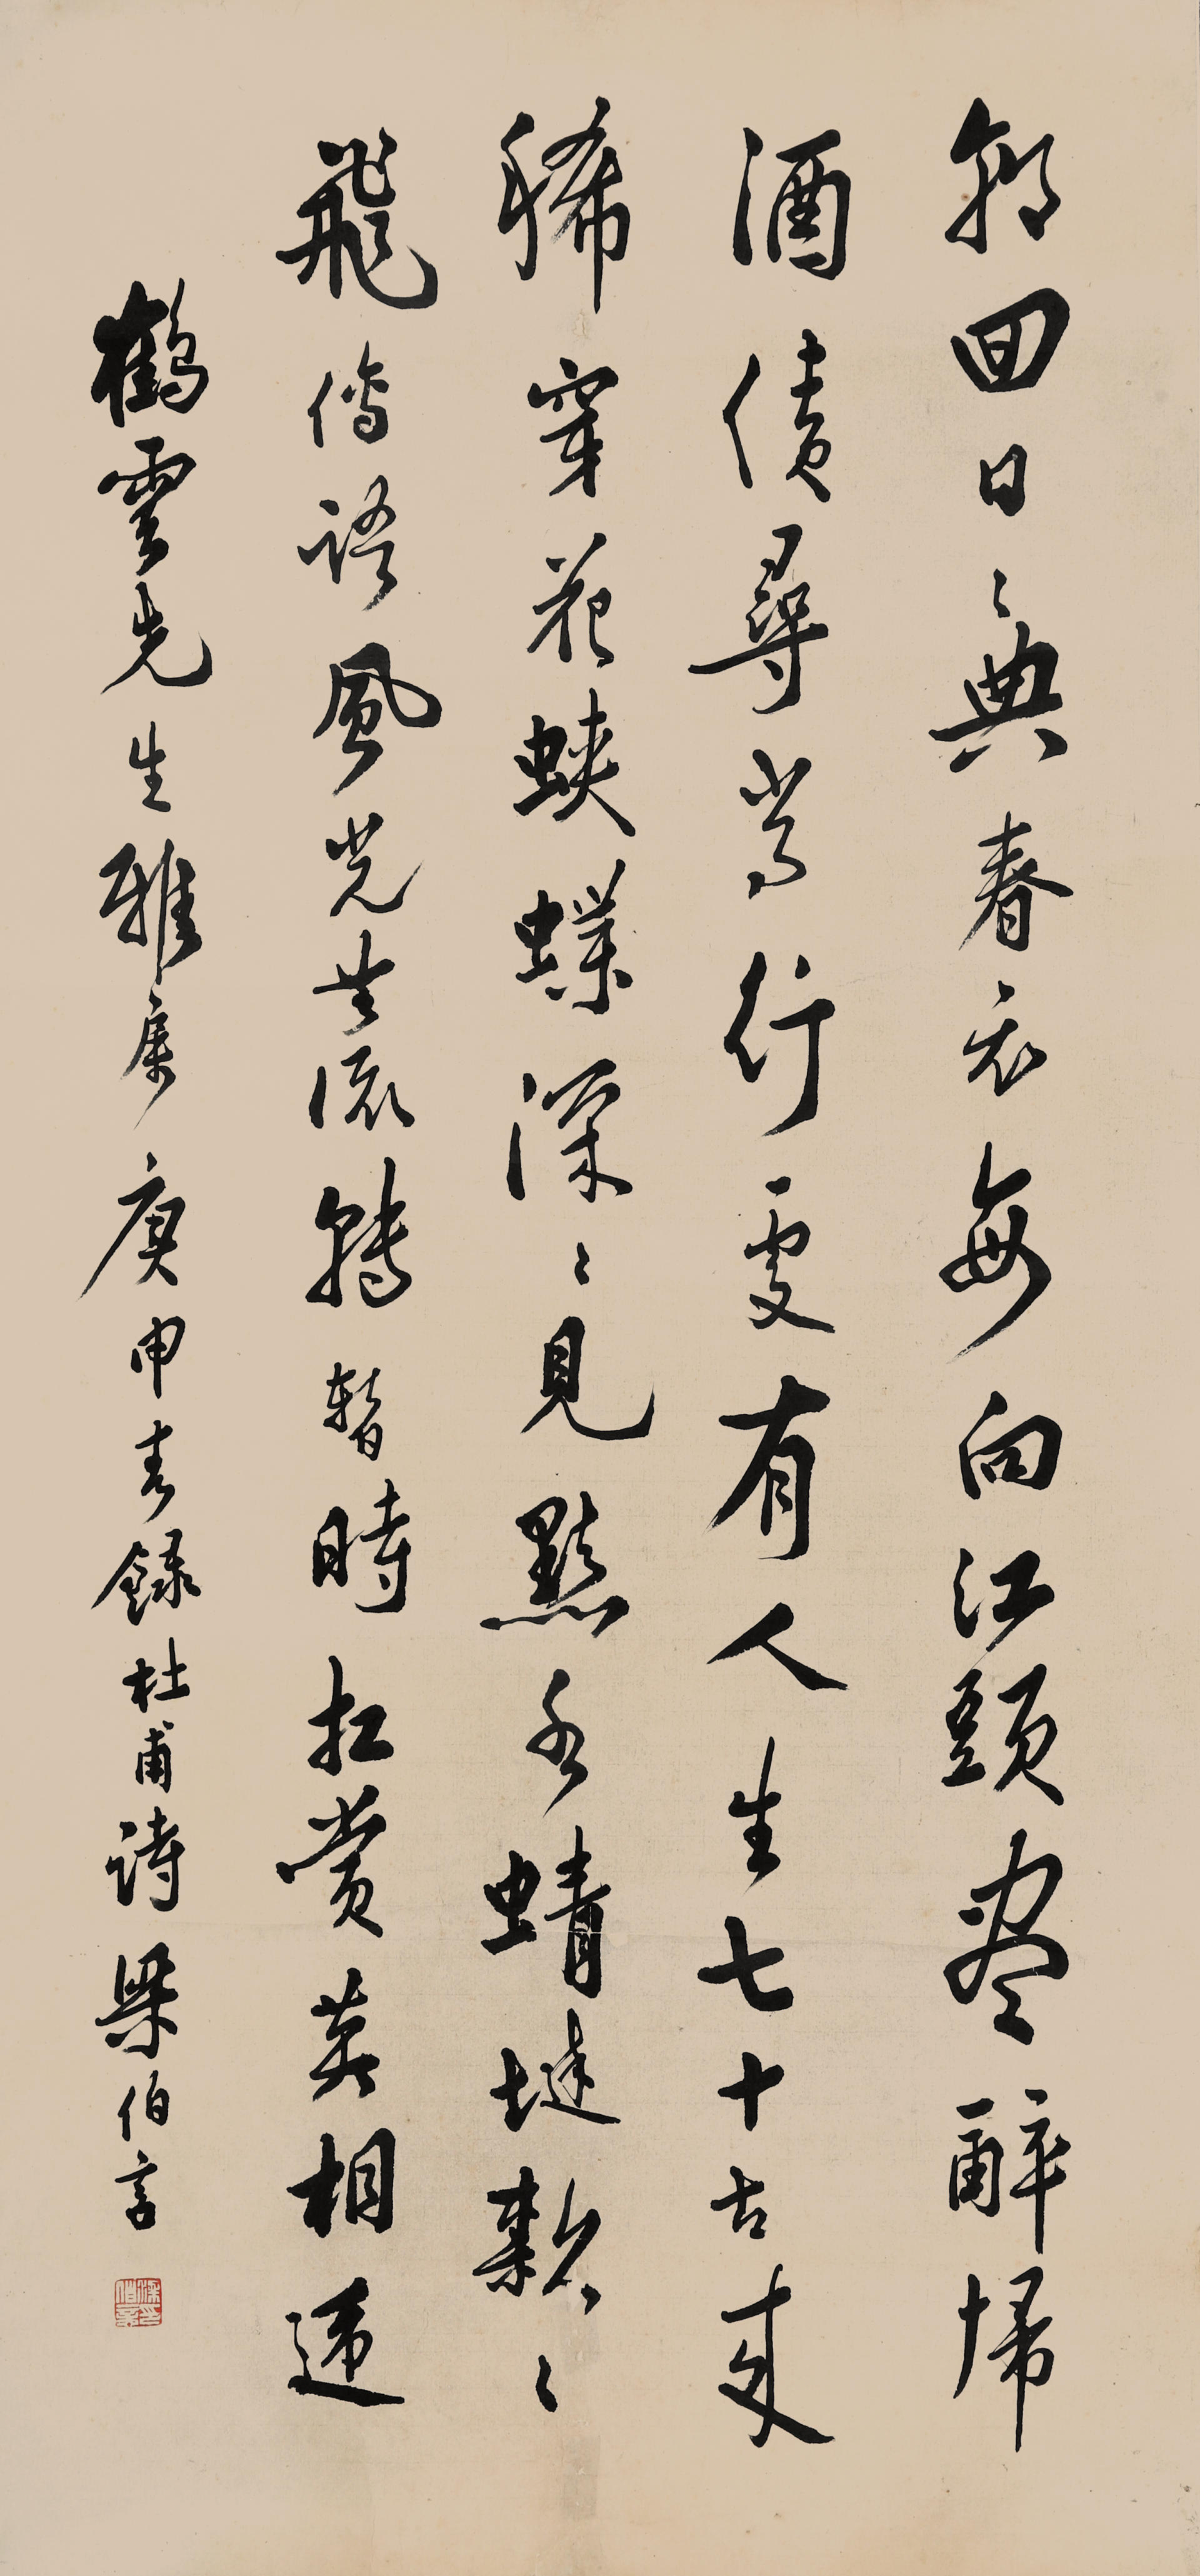 朝回日々典春衣每向江頭盡醉歸
酒債尋常行處有人生七十古來
稀穿花蛺蝶深々見點水蜻蜓款々
飛傳語風光共流轉暫時相賞莫相違
鶴雲先生雅屬 庚申春錄杜甫詩 梁伯言